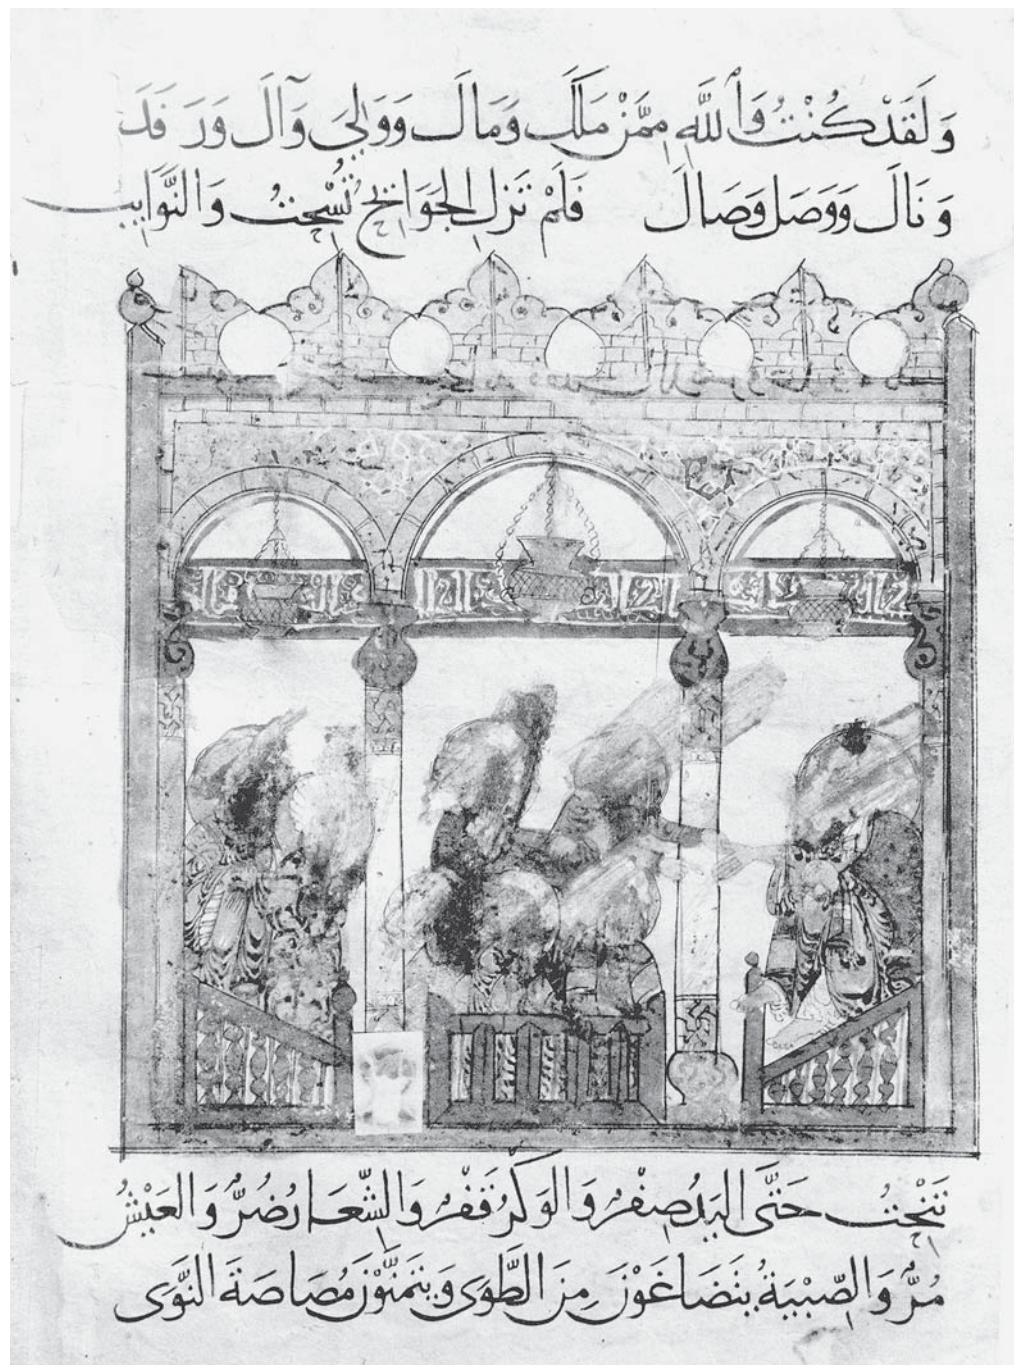 وَلَقَدْ كُنْتُ وَٱللَّهِ مِمَّنْ مَلَكَ وَمَالَ وَوَالِيَ وَآلَ وَرَفَدَ
وَنَالَ وَوَصَلَ وَصَالَ فَلَمْ تَزَلِ الجَوَائِحُ تُسْحِتُ وَالنَّوَائِبُ
تَنْحِتُ حَتَّى اليَدُ صِفْرٌ وَالوَكْرُ قَفْرٌ وَالشِّعَارُ ضُرٌّ وَالعَيْشُ
مُرٌّ وَالصِّبْيَةُ يَتَضَاغَوْنَ مِنَ الطَّوَى وَيَتَمَنَّوْنَ مُصَاصَةَ النَّوَى